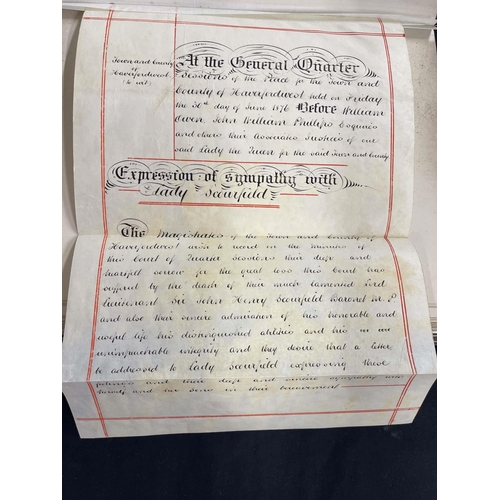 Town and County
of
Haverfordwest
to wit
At the General Quarter
Sessions of the Peace for the Town and
County of Haverfordwest held on Friday
the 30th day of June 1876 Before William
Owen John William Phillips Esquires
and others their Associates Justices of our
said Lady the Queen for the said Town and County
Expression of sympathy with
Lady Scourfield
The Magistrates of the Town and County of
Haverfordwest wish to record in the Minutes of
this Court of Quarter Sessions their deep and
heartfelt sorrow for the great loss this Court has
suffered by the death of their much lamented Lord
Lieutenant Sir John Henry Scourfield Baronet M.P
and also their sincere admiration of his honorable and
useful life his distinguished abilities and his
unimpeachable integrity and they desire that a letter
be addressed to Lady Scourfield expressing these
feelings and their deep and sincere sympathy with
and her sons in their bereavement